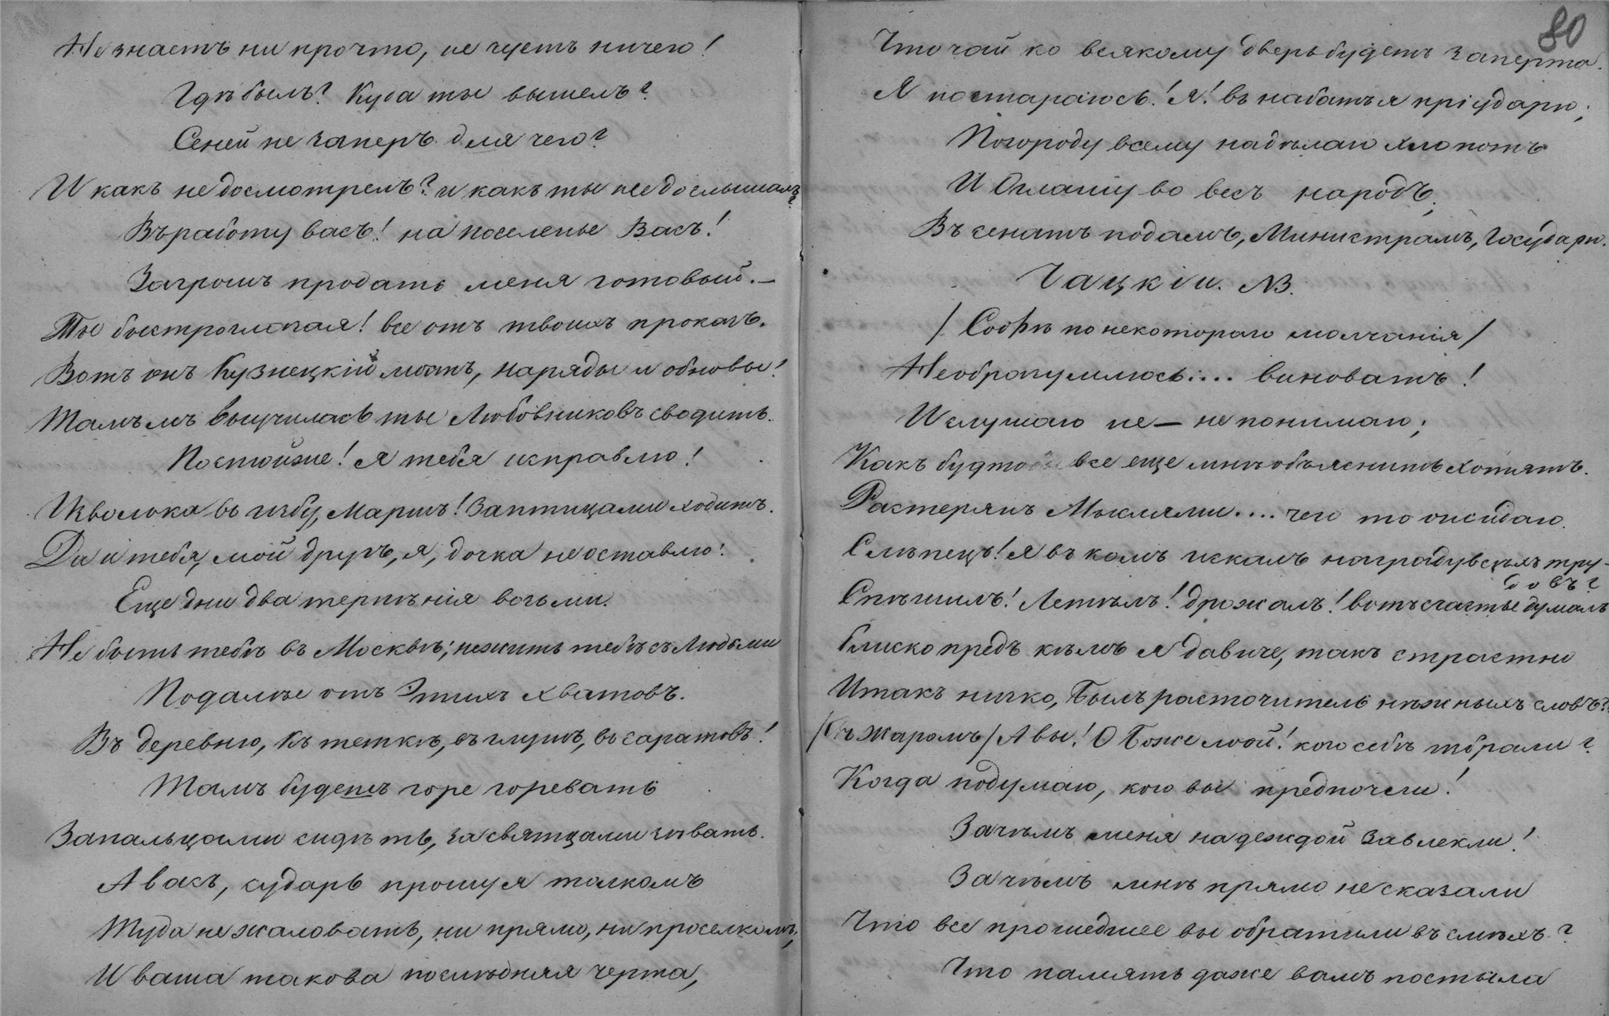 Не знаетъ ни прочто, не чуетъ ничего!
Гдѣ былъ? Куда ты вышелъ?
Сеней не заперъ для чего?
И какъ не досмотрелъ? и какъ ты не дослышалъ?
Въ работу васъ! на поселенье Васъ!
За грошъ продать меня готовый. —
Ты быстроглазая! все отъ твоихъ проказъ.
Вотъ онъ Кузнецкій мостъ, наряды и обновы!
Тамъ мъ выучилась ты Любовниковъ сводить.
Постой же! я тебя исправлю!
Изволока въ избу, маршъ! За птицами ходить.
Да и тебя, мой другъ, я, дочка не оставлю!
Еще дни два терпѣнія возьми.
Не быть тебѣ въ Москвѣ; не жить тебѣ съ Людьми
Подалѣе отъ Этихъ хватовъ.
Въ деревню, къ теткѣ, въ глушъ, въ саратовъ!
Тамъ будешь горе горевать
За пальцами сидѣть, за святцами зѣвать.
А васъ, сударь прошу я толкомъ
Туда не жаловать, ни прямо, ни проселкомъ,
И ваша такова послѣдняя черта,
80
Что чай ко всякому дверь будетъ заперта.
Я постараюсь! Я! въ набатъ я пріударю;
По городу всему надѣлаю хлопотъ
И Оглашу во весь народъ;
Въ сенатъ подамъ, Министрамъ, Государю.
Чацкій. №3.
/ Софѣ по некотораго молчанія /
Не образумлюсь.... виноватъ!
И слушаю не — не понимаю;
Какъ будто все еще мнѣ объяснить хотятъ.
Растерянъ Мыслями.... чего то ожидаю.
Слѣпецъ! я въ комъ искалъ награду всѣхъ тру-
довъ?
Спѣшилъ! Летѣлъ! дрожалъ! вотъ счастье думалъ
близко предъ кѣмъ я давиче, такъ страстно
И такъ низко, Былъ расточитель нѣжныхъ словъ?
/ Съ Жаромъ / А вы! О Боже мой! кого себѣ избрали?
Когда подумаю, кого вы предпочли!
Зачѣмъ меня надеждой Завлекли!
Зачѣмъ мнѣ прямо не сказали
Что все прошедшее вы обратили въ смѣхъ?
Что память даже вамъ постыла